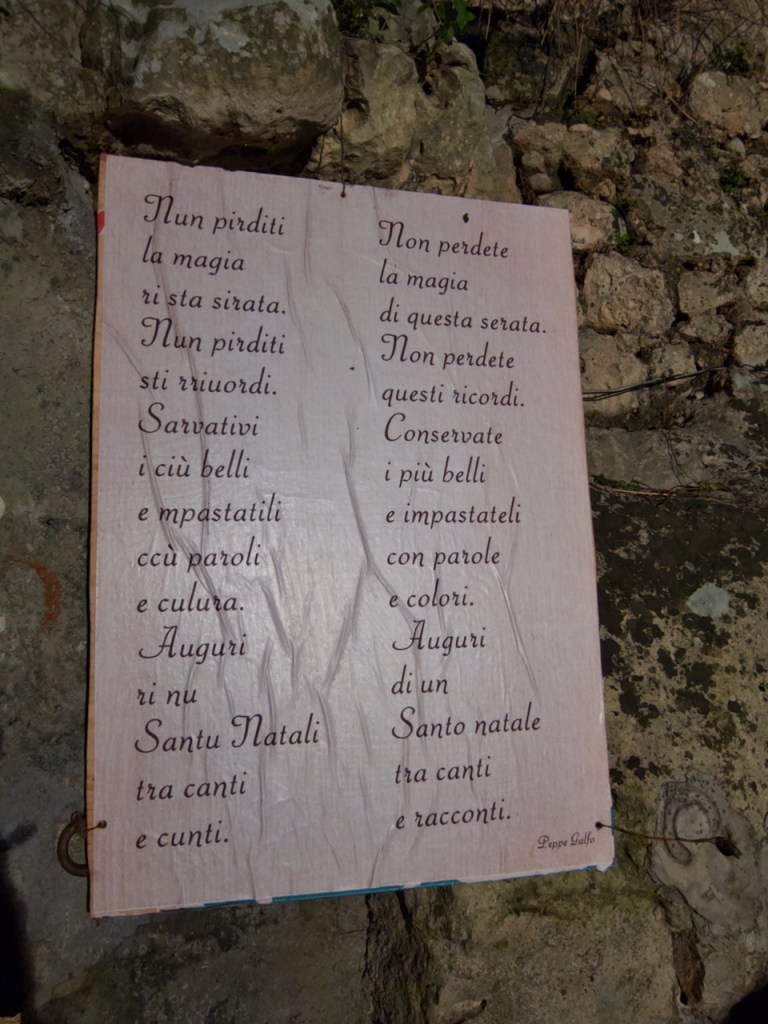 Nun pirditi
la magia
ri sta sirata.
Nun pirditi
sti rriuordi.
Sarvativi
i ciù belli
e mpastatili
ccù paroli
e culura.
Auguri
ri nu
Santu Natali
tra canti
e cunti.
Non perdete
la magia
di questa serata.
Non perdete
questi ricordi.
Conservate
i più belli
e impastateli
con parole
e colori.
Auguri
di un
Santo natale
tra canti
e racconti.
Peppe Galfo